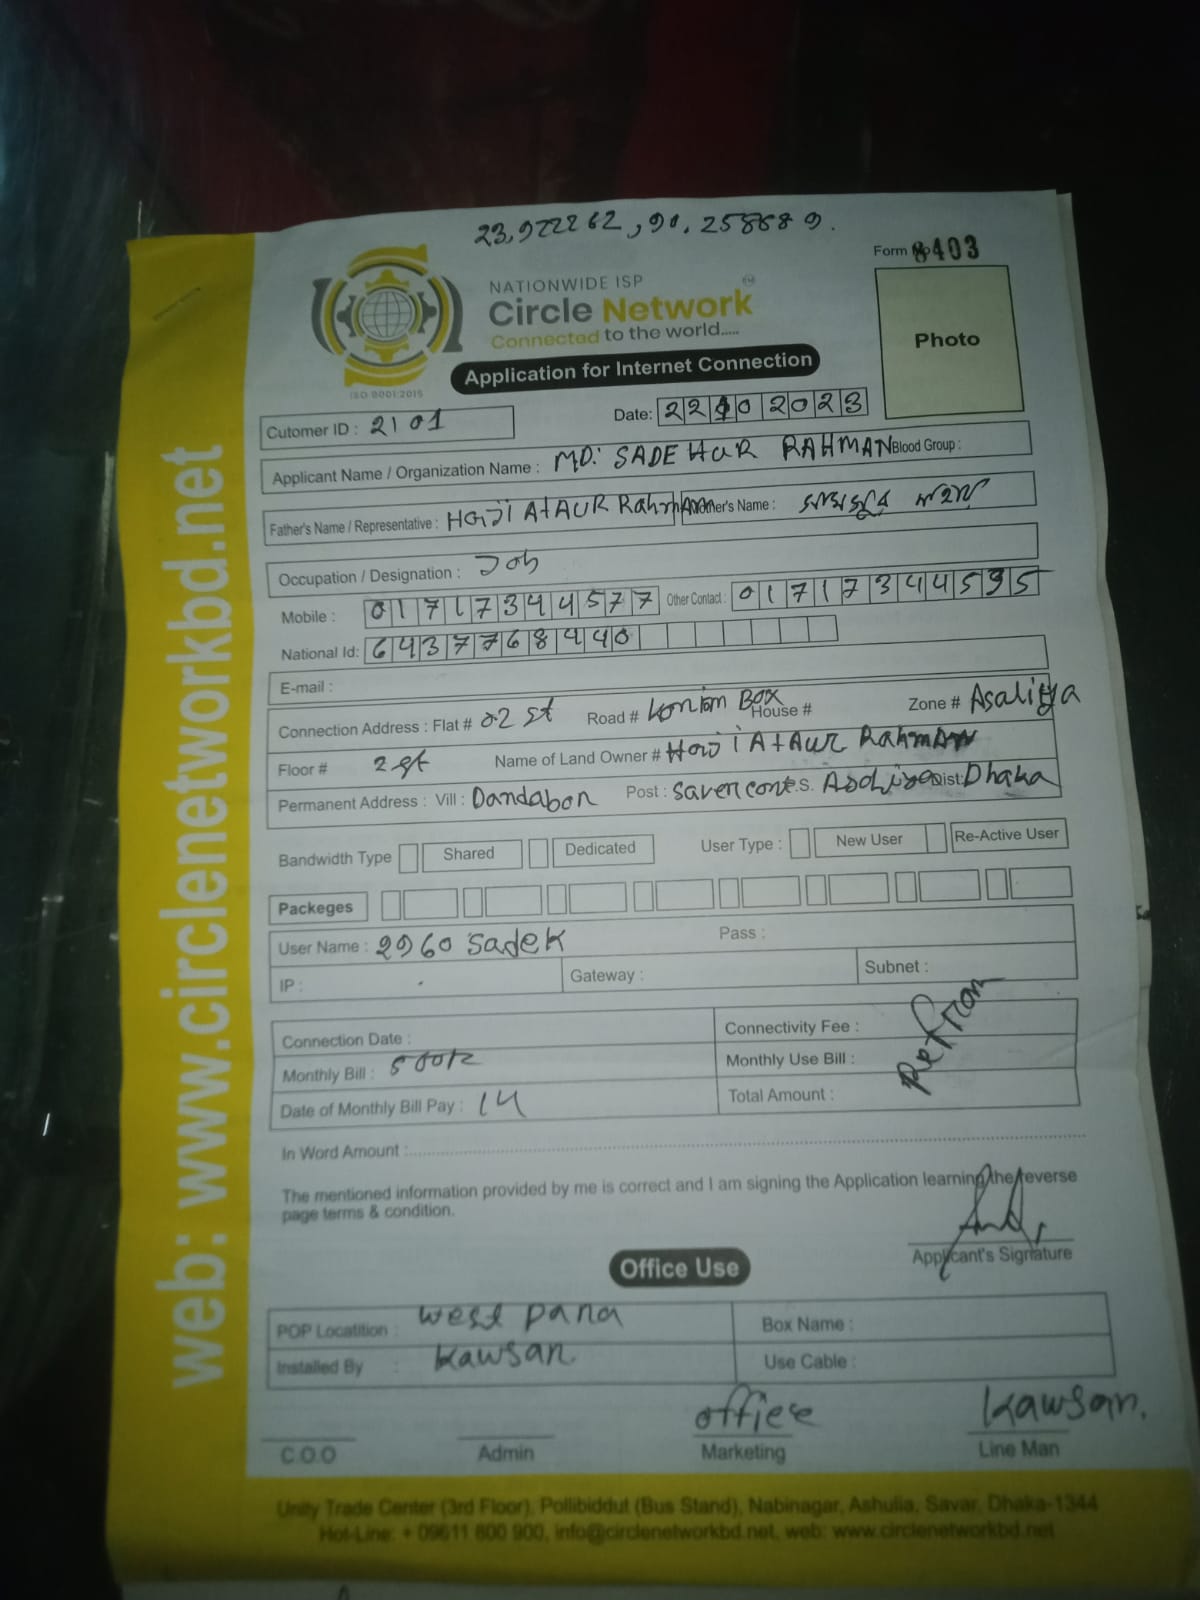 Form No 8403
NATIONWIDE ISP
Circle Network
Connected to the world.....
ISO 9001:2015
Application for Internet Connection
Photo
Cutomer ID : 2101
Date: 22102023
Applicant Name / Organization Name : MD: SADEHUR RAHMAN Blood Group :
Father's Name / Representative : Haji AtAUR Rahman Mother's Name :
Occupation / Designation : Job
Mobile : 01717344577 Other Contact : 01717344535
National Id: 6437768440
E-mail :
Connection Address : Flat # 02 st Road # House # Zone # Asaliya
Floor # 2 st Name of Land Owner # Haji AtAUR Rahman
Permanent Address : Vill : Dandabon Post : P.S. Dist: Dhaka
Bandwidth Type Shared Dedicated User Type : New User Re-Active User
Packeges
User Name : 2960 sadek Pass :
IP : Gateway : Subnet :
Connection Date : Connectivity Fee :
Monthly Bill : Monthly Use Bill :
Date of Monthly Bill Pay : 14 Total Amount :
In Word Amount :
The mentioned information provided by me is correct and I am signing the Application learning the reverse
page terms & condition.
Applicant's Signature
Office Use
POP Locatition : west para Box Name :
Installed By : Kawsan Use Cable :
office Kawsan.
C.O.O Admin Marketing Line Man
Unity Trade Center (3rd Floor), Pollibiddut (Bus Stand), Nabinagar, Ashulia, Savar, Dhaka-1344
Hot-Line: + 09611 800 900, info@circlenetworkbd.net, web: www.circlenetworkbd.net
web: www.circlenetworkbd.net